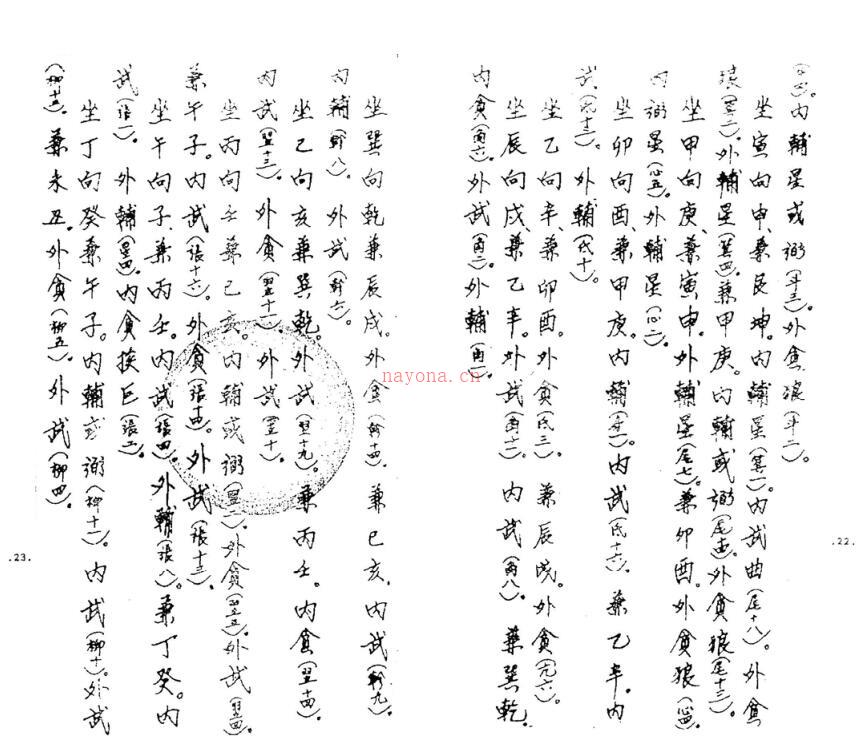 內輔星或弼(斗三)。外貪狼(斗二)。
坐寅向申、兼艮坤。內輔星(箕一)。內武曲(尾十八)。外貪
狼(箕二)。外輔星(箕四)。兼甲庚。內輔或弼(尾)。外貪狼(尾十三)。
坐甲向庚、兼寅申。外輔星(尾七)。兼卯酉。外貪狼(心四)。
內弼星(心五)。外輔星(心二)。
坐卯向酉、兼甲庚。內輔。內武(氐十六)。兼乙辛。內
武(氐十三)。外輔(氐十)。
坐乙向辛、兼卯酉。外貪(氐三)。兼辰戌。外貪(亢六)。
坐辰向戌、兼乙辛。外武(角十一)。內武(角八)。兼巽乾。
內貪(角六)。外武(角二)。外輔(角一)。
.22.
坐巽向乾兼辰戌。外貪(軫十四)。兼巳亥、內武(軫九)。
內輔(軫八)。外武(軫六)。
坐巳向亥兼巽乾。外武(翌十九)。兼丙壬。內貪(翌十四)。
內武(翌十三)。外貪(翌十一)。外武(翌十)。
坐丙向壬兼巳亥。內輔或弼(翌二)。外貪(翌五)。外武(翌四)。
兼午子。內武(張十六)。外貪(張十四)。外武(張十三)。
坐午向子、兼丙壬。內武(張四)。外輔(張八)。兼丁癸。內
武(張一)。外輔(星四)。內貪挨巨(張二)。
坐丁向癸兼午子。內輔或弼(柳十一)。內武(柳十)。外武
(柳十五)。兼未丑。外貪(柳五)。外武(柳四)。
.23.
nayona.cn